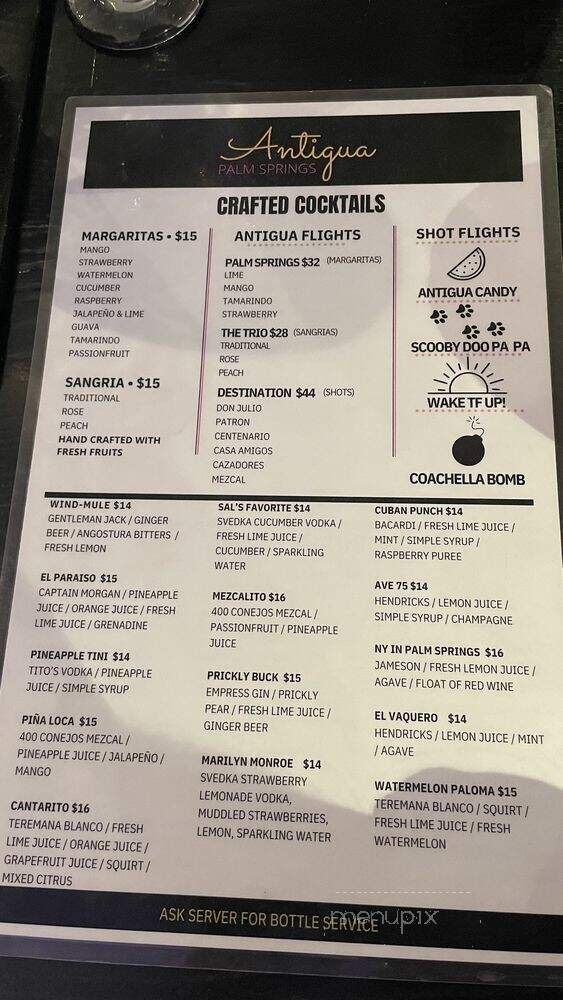 Antigua
PALM SPRINGS
CRAFTED COCKTAILS
MARGARITAS • $15
MANGO
STRAWBERRY
WATERMELON
CUCUMBER
RASPBERRY
JALAPEÑO & LIME
GUAVA
TAMARINDO
PASSIONFRUIT
SANGRIA • $15
TRADITIONAL
ROSE
PEACH
HAND CRAFTED WITH
FRESH FRUITS
ANTIGUA FLIGHTS
PALM SPRINGS $32 (MARGARITAS)
LIME
MANGO
TAMARINDO
STRAWBERRY
THE TRIO $28 (SANGRIAS)
TRADITIONAL
ROSE
PEACH
DESTINATION $44 (SHOTS)
DON JULIO
PATRON
CENTENARIO
CASA AMIGOS
CAZADORES
MEZCAL
SHOT FLIGHTS
ANTIGUA CANDY
SCOOBY DOO PA PA
WAKE TF UP!
COACHELLA BOMB
WIND-MULE $14
GENTLEMAN JACK / GINGER
BEER / ANGOSTURA BITTERS /
FRESH LEMON
EL PARAISO $15
CAPTAIN MORGAN / PINEAPPLE
JUICE / ORANGE JUICE / FRESH
LIME JUICE / GRENADINE
PINEAPPLE TINI $14
TITO'S VODKA / PINEAPPLE
JUICE / SIMPLE SYRUP
PIÑA LOCA $15
400 CONEJOS MEZCAL /
PINEAPPLE JUICE / JALAPEÑO /
MANGO
CANTARITO $16
TEREMANA BLANCO / FRESH
LIME JUICE / ORANGE JUICE /
GRAPEFRUIT JUICE / SQUIRT /
MIXED CITRUS
SAL'S FAVORITE $14
SVEDKA CUCUMBER VODKA /
FRESH LIME JUICE /
CUCUMBER / SPARKLING
WATER
MEZCALITO $16
400 CONEJOS MEZCAL /
PASSIONFRUIT / PINEAPPLE
JUICE
PRICKLY BUCK $15
EMPRESS GIN / PRICKLY
PEAR / FRESH LIME JUICE /
GINGER BEER
MARILYN MONROE $14
SVEDKA STRAWBERRY
LEMONADE VODKA,
MUDDLED STRAWBERRIES,
LEMON, SPARKLING WATER
CUBAN PUNCH $14
BACARDI / FRESH LIME JUICE /
MINT / SIMPLE SYRUP /
RASPBERRY PUREE
AVE 75 $14
HENDRICKS / LEMON JUICE /
SIMPLE SYRUP / CHAMPAGNE
NY IN PALM SPRINGS $16
JAMESON / FRESH LEMON JUICE /
AGAVE / FLOAT OF RED WINE
EL VAQUERO $14
HENDRICKS / LEMON JUICE / MINT
/ AGAVE
WATERMELON PALOMA $15
TEREMANA BLANCO / SQUIRT /
FRESH LIME JUICE / FRESH
WATERMELON
ASK SERVER FOR BOTTLE SERVICE
menupix